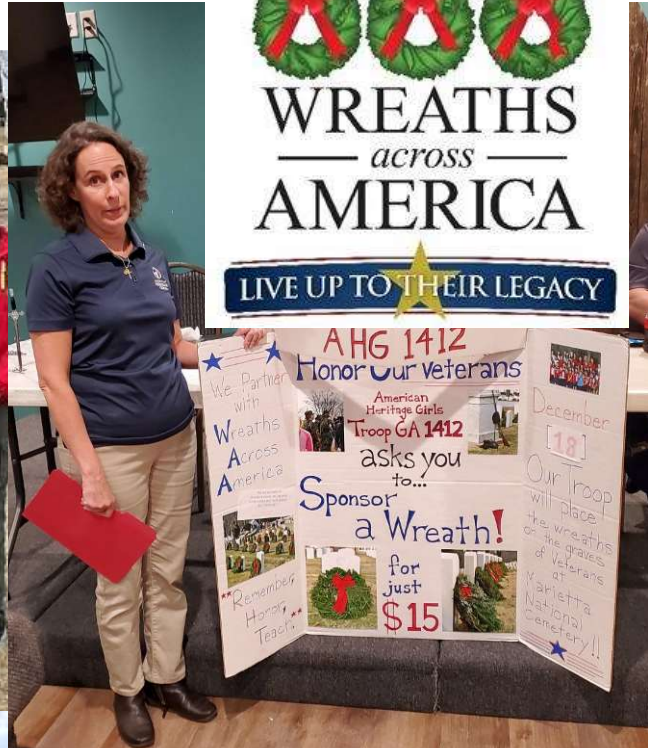 WREATHS
across
AMERICA
LIVE UP TO THEIR LEGACY
We Partner
with
Wreaths
Across
America
"Remember,
Honor,
Teach"
AHG 1412
Honor Our Veterans
American
Heritage Girls
Troop GA 1412
asks you
to...
Sponsor
a Wreath!
for
just
$15
December
18
Our Troop
will place
the wreaths
on the graves
of Veterans
at
Marietta
National
Cemetery!!